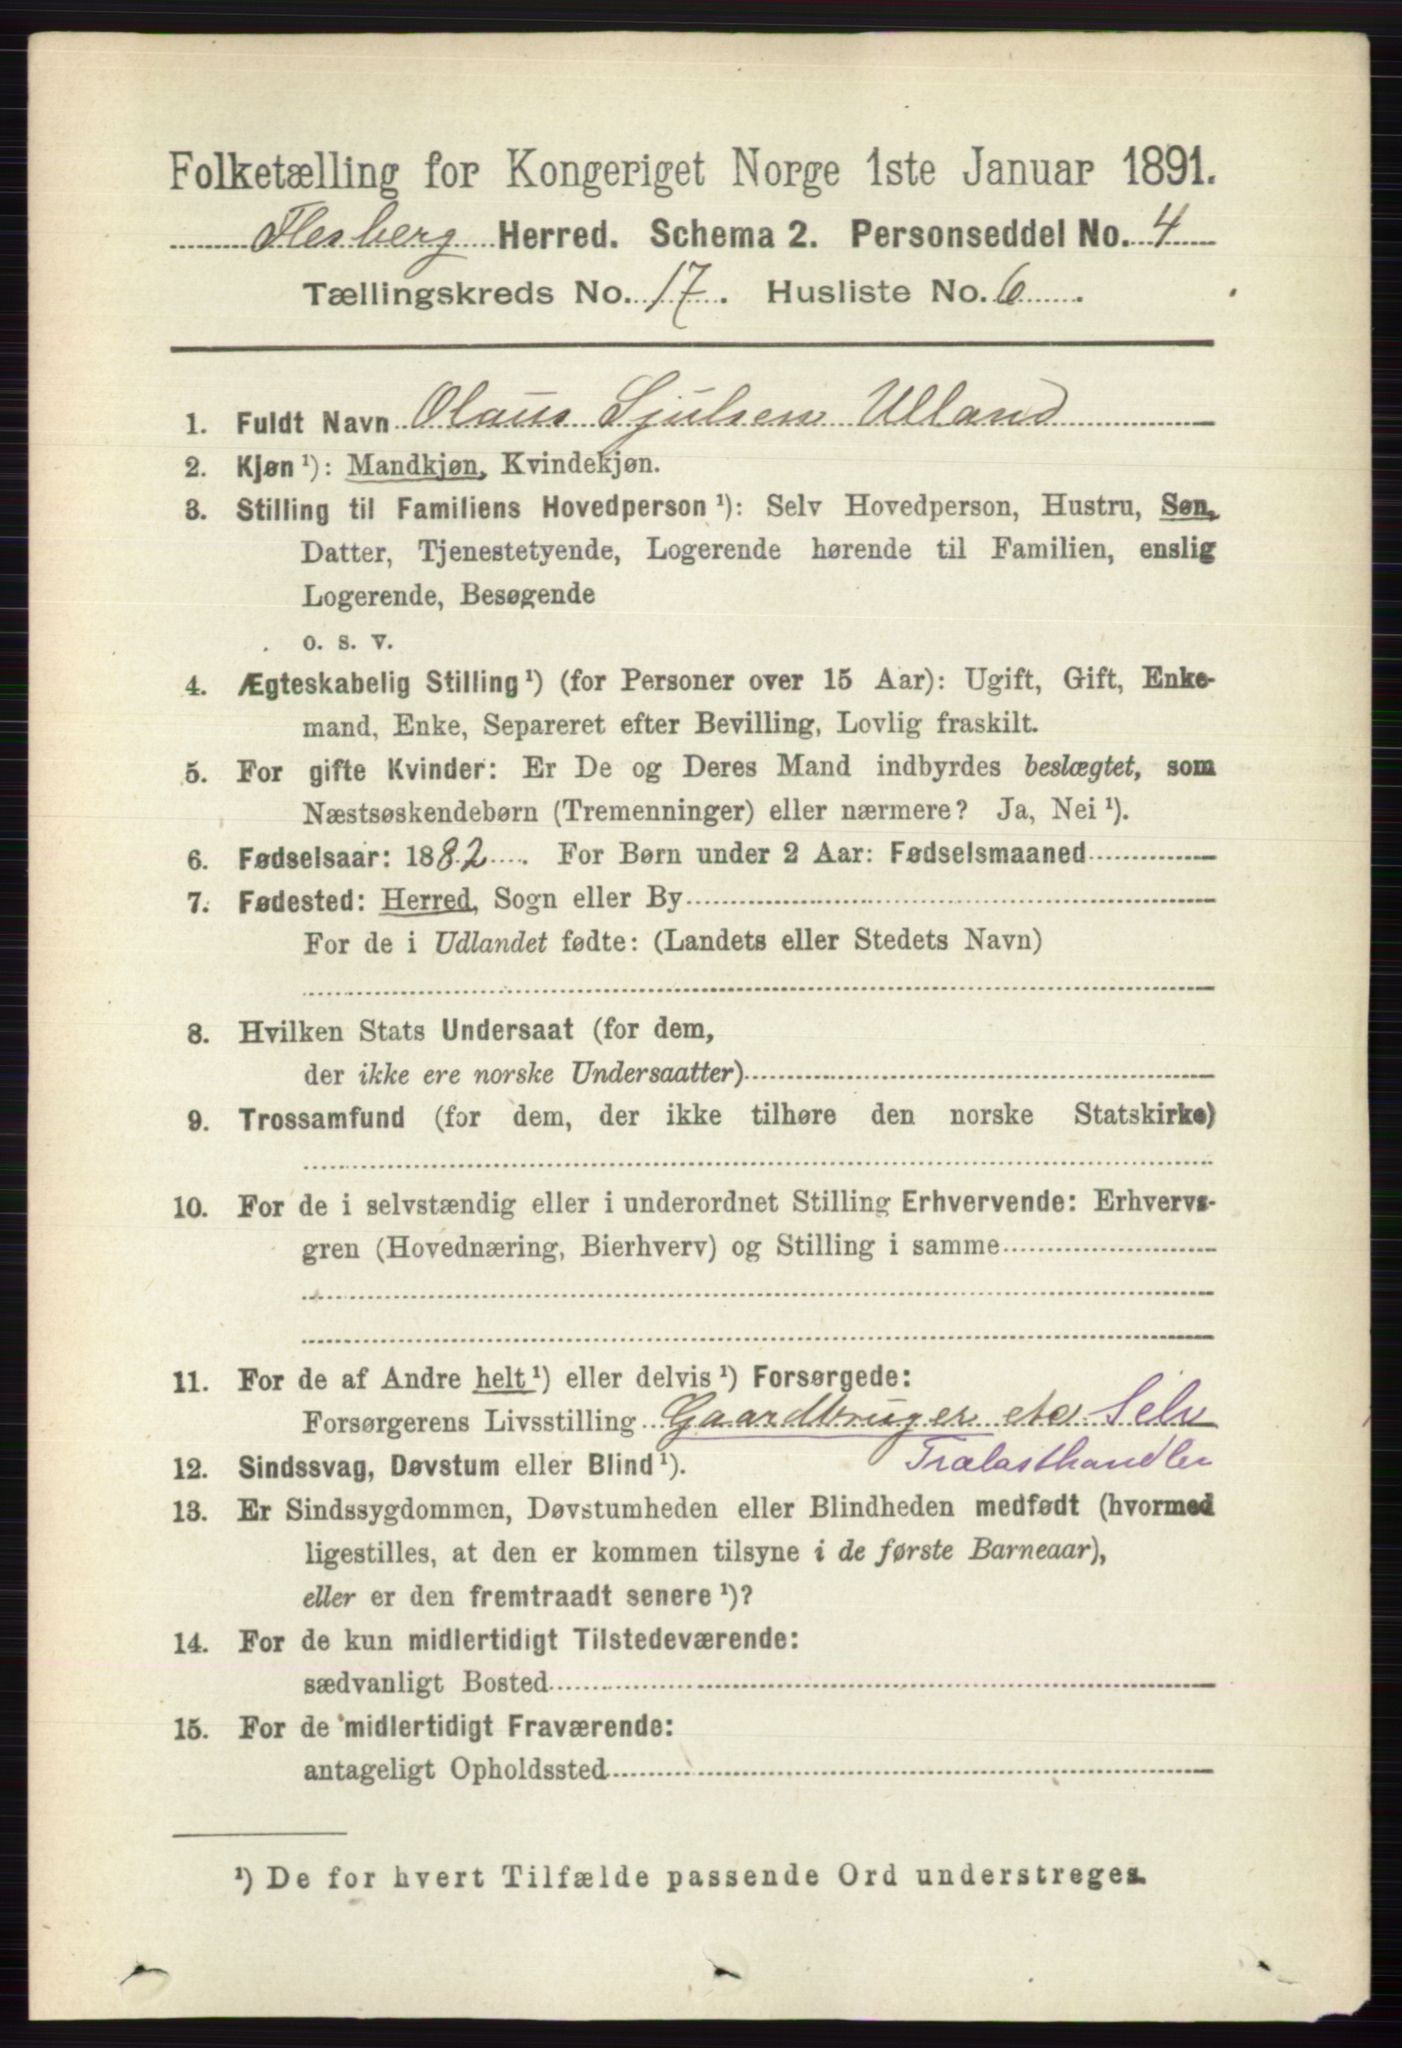 Folketælling for Kongeriget Norge 1ste Januar 1891.
Flesberg Herred. Schema 2. Personseddel No. 4
Tællingskreds No. 17. Husliste No. 6.
1. Fuldt Navn Olaus Sjulsen Ulland
2. Kjøn ¹): Mandkjøn, Kvindekjøn.
3. Stilling til Familiens Hovedperson ¹): Selv Hovedperson, Hustru, Søn,
Datter, Tjenestetyende, Logerende hørende til Familien, enslig
Logerende, Besøgende
o. s. v.
4. Ægteskabelig Stilling ¹) (for Personer over 15 Aar): Ugift, Gift, Enke-
mand, Enke, Separeret efter Bevilling, Lovlig fraskilt.
5. For gifte Kvinder: Er De og Deres Mand indbyrdes beslægtet, som
Næstsøskendebørn (Tremenninger) eller nærmere? Ja, Nei ¹).
6. Fødselsaar: 1882. For Børn under 2 Aar: Fødselsmaaned
7. Fødested: Herred, Sogn eller By
For de i Udlandet fødte: (Landets eller Stedets Navn)
8. Hvilken Stats Undersaat (for dem,
der ikke ere norske Undersaatter)
9. Trossamfund (for dem, der ikke tilhøre den norske Statskirke)
10. For de i selvstændig eller i underordnet Stilling Erhvervende: Erhvervs-
gren (Hovednæring, Bierhverv) og Stilling i samme
11. For de af Andre helt ¹) eller delvis ¹) Forsørgede:
Forsørgerens Livsstilling Gaardbruger Selv
Trælasthandler
12. Sindssvag, Døvstum eller Blind ¹).
13. Er Sindssygdommen, Døvstumheden eller Blindheden medfødt (hvormed
ligestilles, at den er kommen tilsyne i de første Barneaar),
eller er den fremtraadt senere ¹)?
14. For de kun midlertidigt Tilstedeværende:
sædvanligt Bosted
15. For de midlertidigt Fraværende:
antageligt Opholdssted
¹) De for hvert Tilfælde passende Ord understreges.